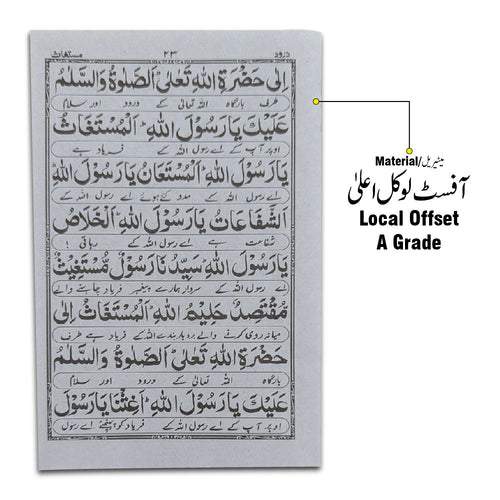 درود ۲۳ مستغاث
اِلٰی حَضْرَةِ اللّٰهِ تَعَالٰی اَلصَّلٰوةُ وَالسَّلَامُ
طرف بارگاہ اللہ تعالیٰ کے درود اور سلام
عَلَیْكَ یَارَسُوْلَ اللّٰهِ اَلْمُسْتَغَاثُ
اوپر آپ کے اے رسول اللہ کے فریاد ہے
یَارَسُوْلَ اللّٰهِ اَلْمُسْتَعَانُ یَارَسُوْلَ اللّٰهِ
اے رسول اللہ کے مدد کئے ہوئے اے رسول اللہ کے
اَلشَّفَاعَاتُ یَارَسُوْلَ اللّٰهِ اَلْخَلَاصُ
شفاعت ہے اے رسول اللہ کے رہائی !
یَارَسُوْلَ اللّٰهِ سَیِّدُنَا رَسُوْلٌ مُّسْتَغِیْثٌ
اے رسول اللہ کے سردار ہمارے پیغمبر فریاد چاہنے والے
مُقْتَصِدٌ حَلِیْمُ اللّٰهِ اَلْمُسْتَغَاثُ اِلٰی
میانہ روی کرنے والے بردبار بندے اللہ کے فریاد ہے طرف
حَضْرَةِ اللّٰهِ تَعَالٰی اَلصَّلٰوةُ وَالسَّلَامُ
بارگاہ اللہ تعالیٰ کے درود اور سلام
عَلَیْكَ یَارَسُوْلَ اللّٰهِ اَغِثْنَا یَارَسُوْلَ
اوپر آپ کے اے رسول اللہ کے فریاد کو پہنچئے اے رسول
Material/میٹیریل
آفسٹ لوکل اعلیٰ
Local Offset
A Grade